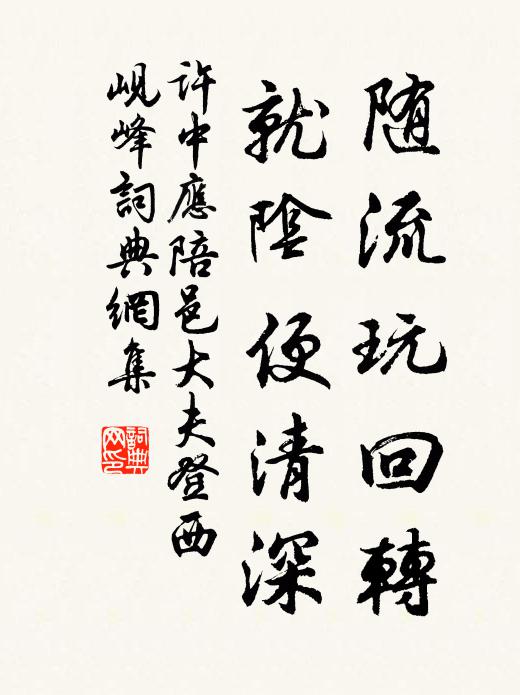 随流玩回轉
就陰便清深
許中應陪邑大夫登西
峴峰詞典網集
詞典
网印